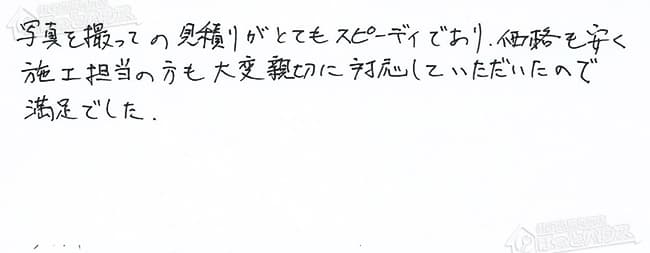 写真を撮っての見積りがとてもスピーディであり、価格も安く
施工担当の方も大変親切に対応していただいたので
満足でした.